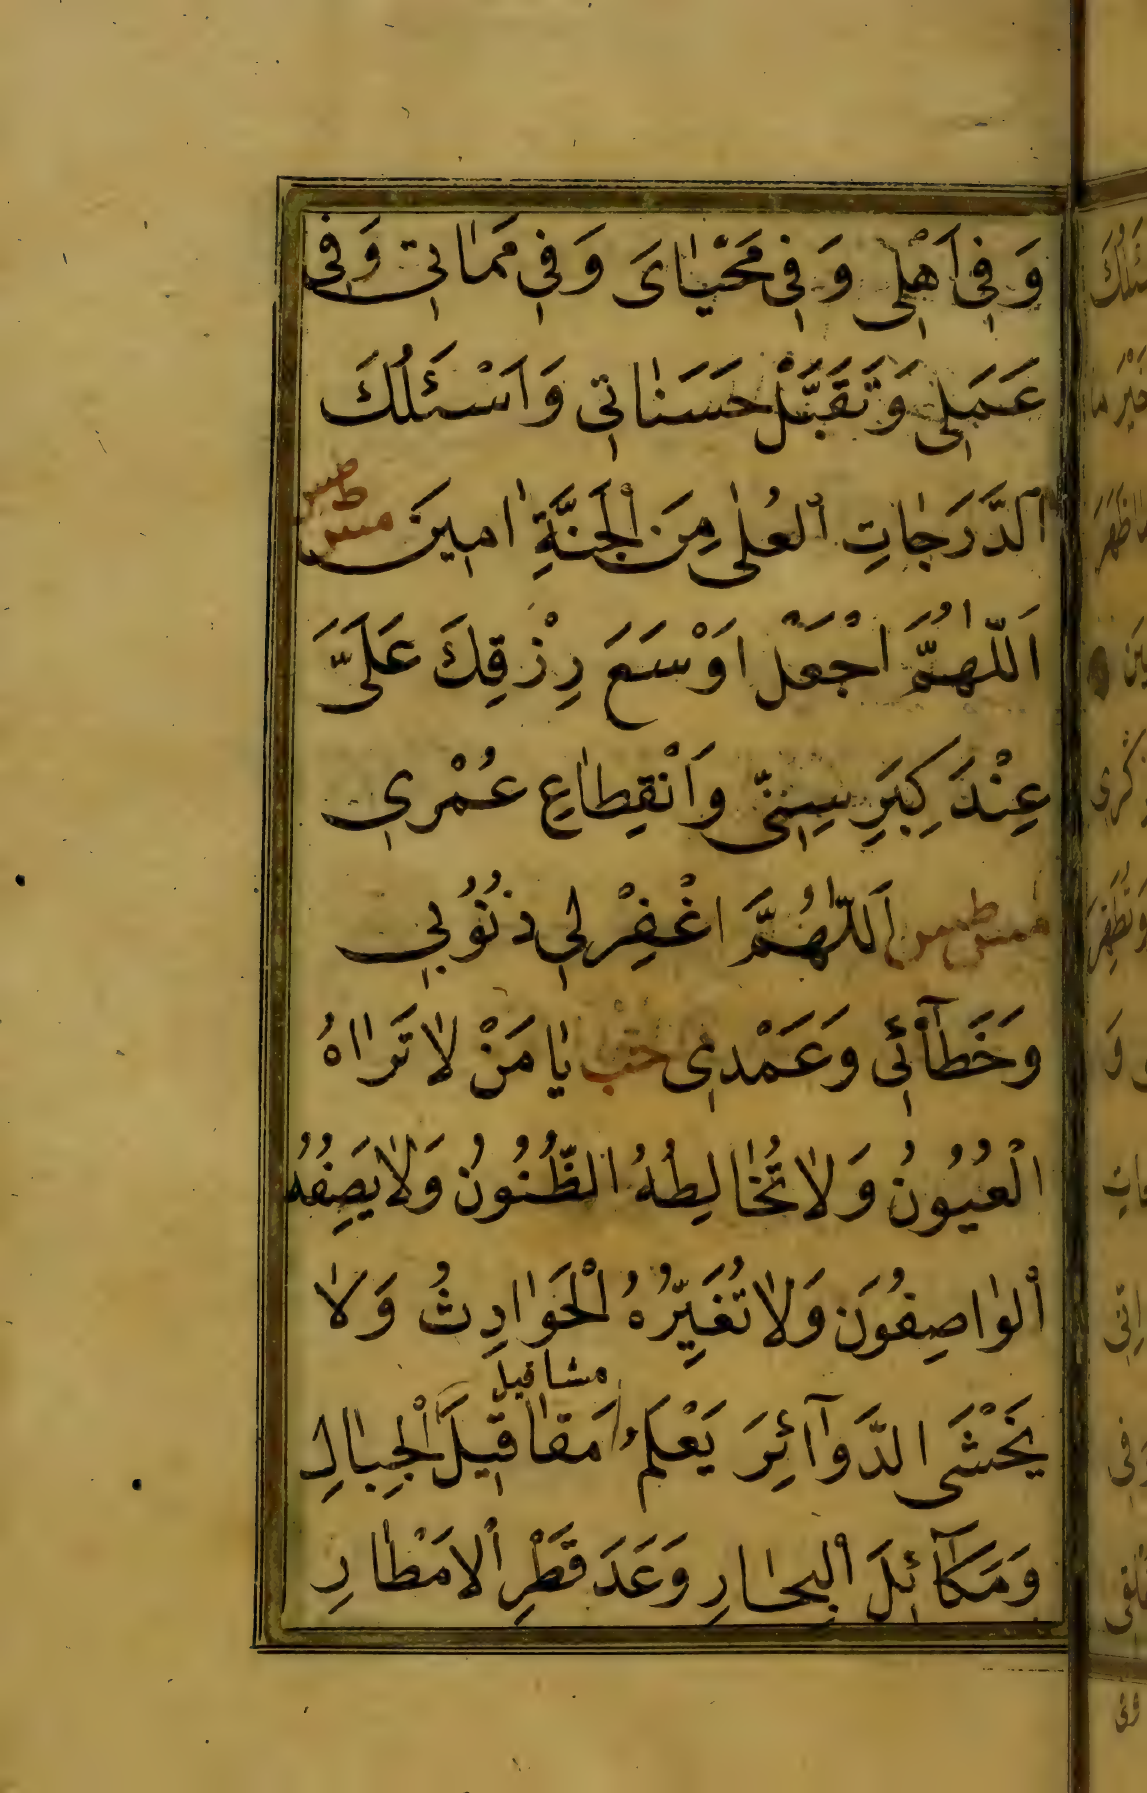 وَفِي اَهْلِي وَفِي مَحْيٰاىَ وَفِي مَمٰاتِي وَفِي
عَمَلِي وَتَقَبَّلْ حَسَنٰاتِي وَاَسْئَلُكَ
الدَّرَجٰاتِ الْعُلٰى مِنَ الْجَنَّةِ اٰمِينَ مس ط
اَللّٰهُمَّ اجْعَلْ اَوْسَعَ رِزْقِكَ عَلَىَّ
عِنْدَ كِبَرِ سِنِّى وَانْقِطٰاعِ عُمْرِي
مس طس اَللّٰهُمَّ اغْفِرْلِي ذُنُوبِي
وَخَطَآئِي وَعَمْدِي حب يٰا مَنْ لٰا تَرٰاهُ
الْعُيُونُ وَلٰا تُخٰالِطُهُ الظُّنُونُ وَلٰا يَصِفُهُ
الْوٰاصِفُونَ وَلٰا تُغَيِّرُهُ الْحَوٰادِثُ وَلٰا
مثاقيل
يَخْشَى الدَّوَآئِرَ يَعْلَمُ مَقٰاقِيلَ الْجِبٰالِ
وَمَكَآئِلَ الْبِحٰارِ وَعَدَ قَطْرِ الْاَمْطٰارِ